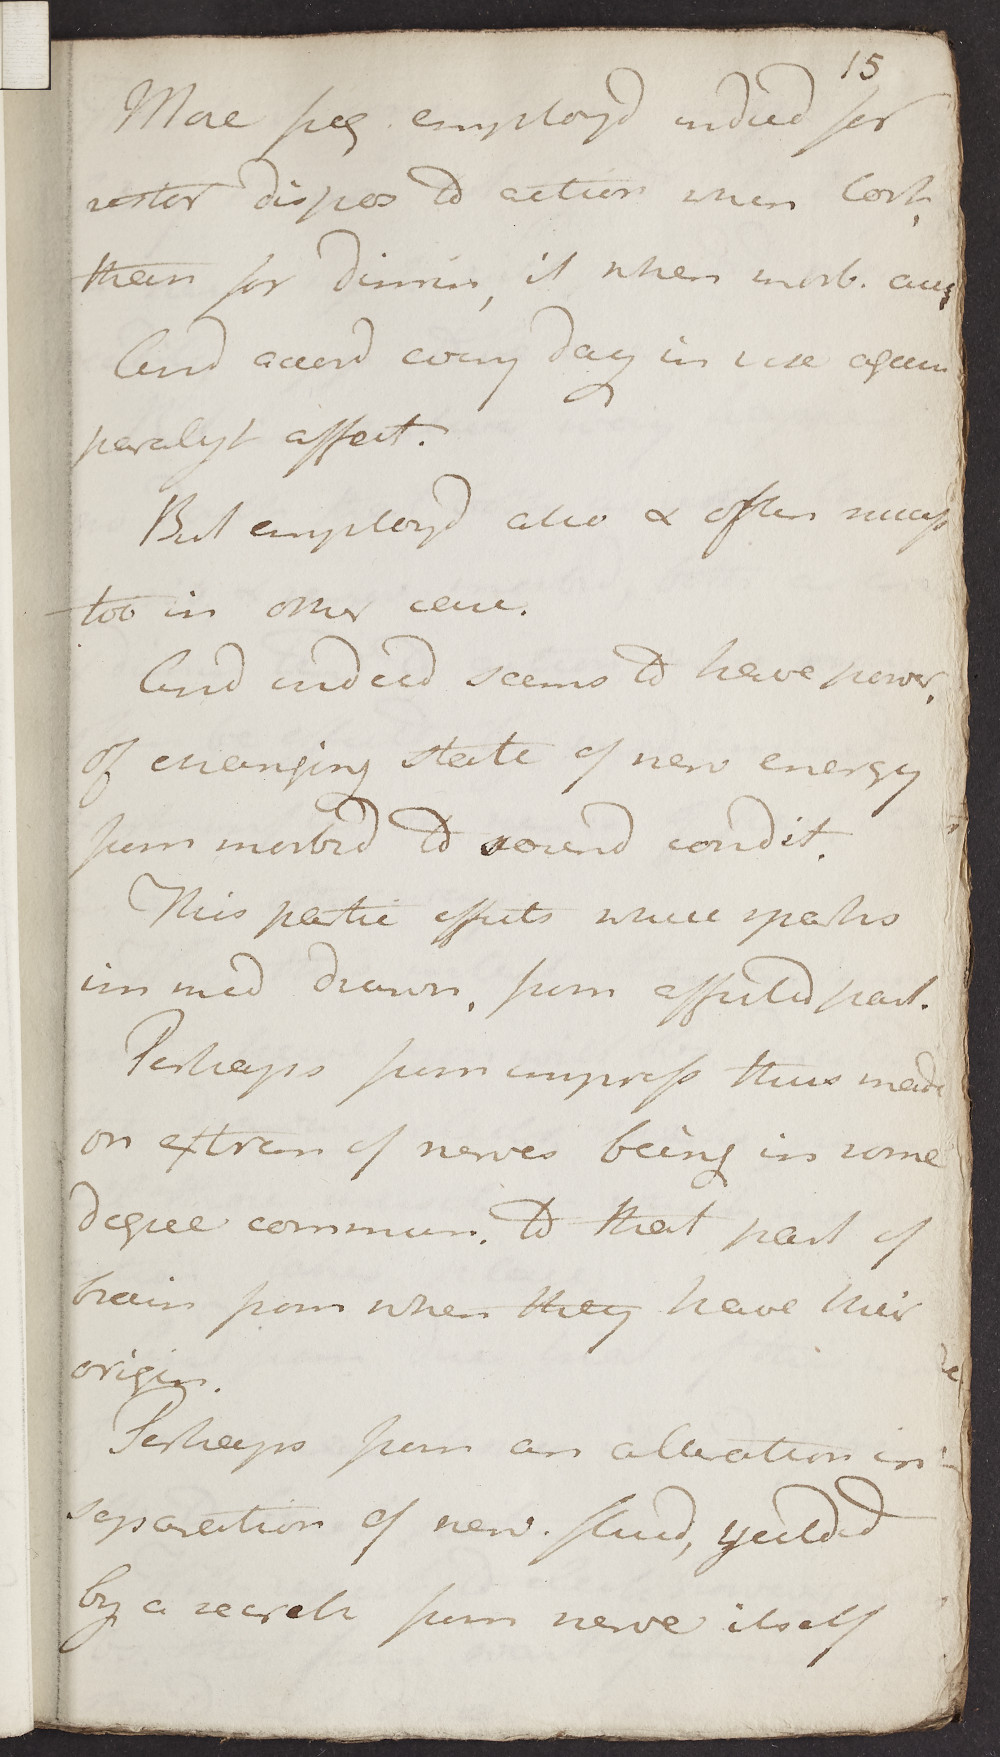 15
More freq employd indeed for
restor dispos to action when lost,
than for dimin, it when morb. aug
And accord every day in use again
paralyt affect.
But employd also & often success
too in other case.
And indeed seems to have power,
of changing state of nerv energy
from morbid to sound condit.
This partic effects where sparks
immed drawn, from affected part.
Perhaps from impress thus made
on extrem of nerves being in some
degree commun. to that part of
brain from when they have their
origin.
Perhaps from an alteration in
separation of nerv. fluid, yeilded
by a search from nerve itself